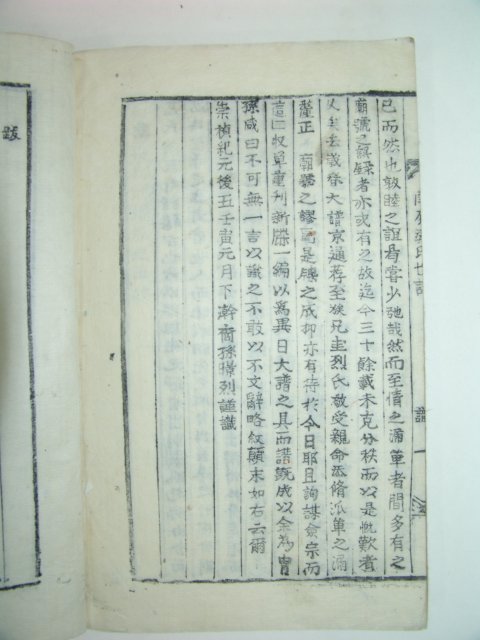 已而然也敦睦之誼曷嘗少弛哉然而至債之漏單者間多有之
廟號之誤錄者亦或有之故迄今三十餘載未克分秩而以是慨歎者
久矣去義榛大譜京通荐至族兄圭烈氏敢受親命丞脩派單之漏
釐正廟號之謬是牒之成抑亦有待於今日耶且詢謀僉宗而
亶口收單重刊新牒一編以爲異日大譜之具而譜旣成以余爲胄
孫咸曰不可無一言以識之不敢以不文辭略紋顚末如右云爾
崇禎紀元後五壬寅元月下澣胄孫 烈謹識
氏世譜
譜
一
跋